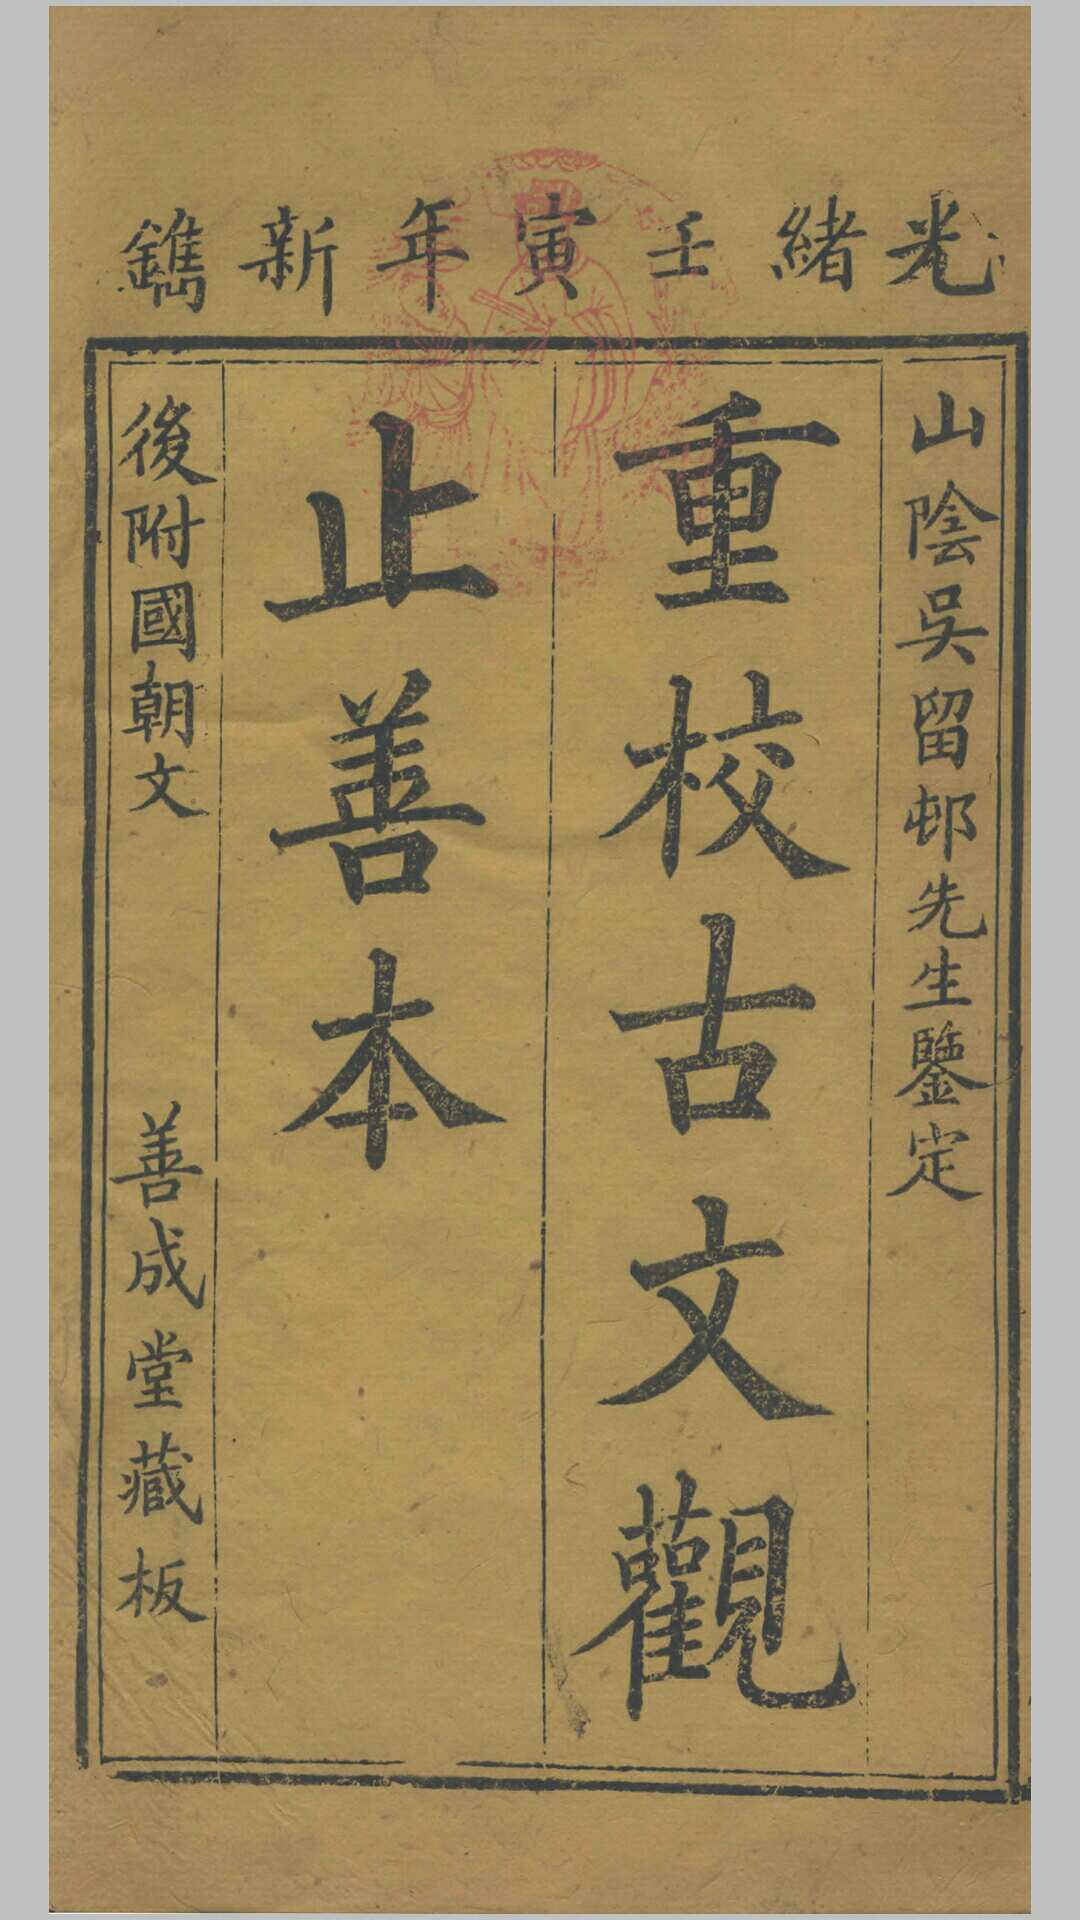 光緒壬寅年新鐫
山陰吳留邨先生鑒定
重校古文觀
止善本
後附國朝文
善成堂藏板